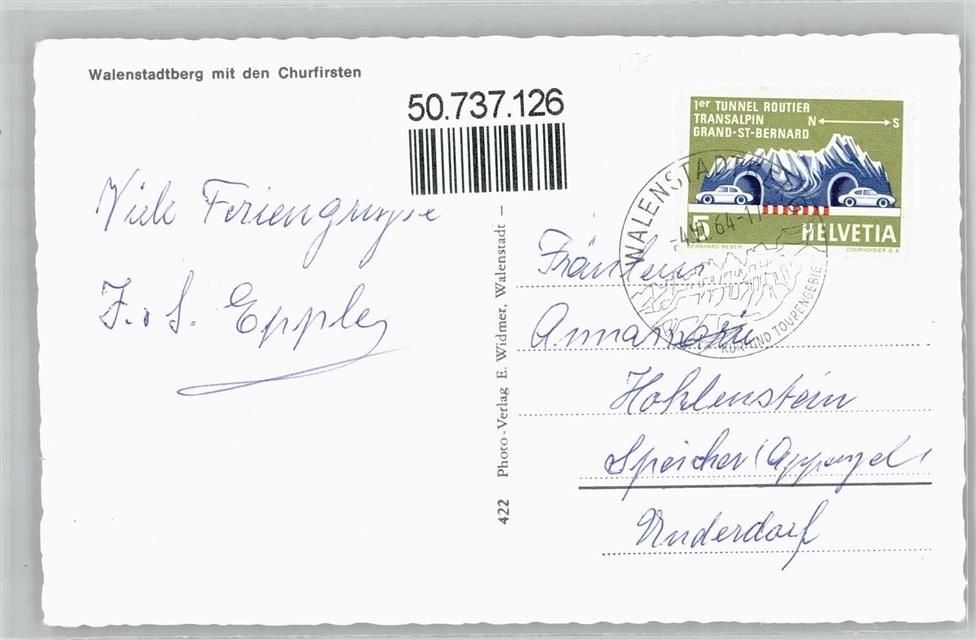 Walenstadtberg mit den Churfirsten
50.737.126
Viele Feriengrüsse
F. + S. Epple
422 Photo-Verlag E. Widmer, Walenstadt –
1er TUNNEL ROUTIER
TRANSALPIN N S
GRAND-ST-BERNARD
5 HELVETIA
BERNHARD REBER COURVOISIER S.A.
WALENSTADTBERG
64-17
KUR- UND TOURENGEBIET
Fräulein
Annamarie
Hohlenstein
Speicher (Appenzell)
Unterdorf